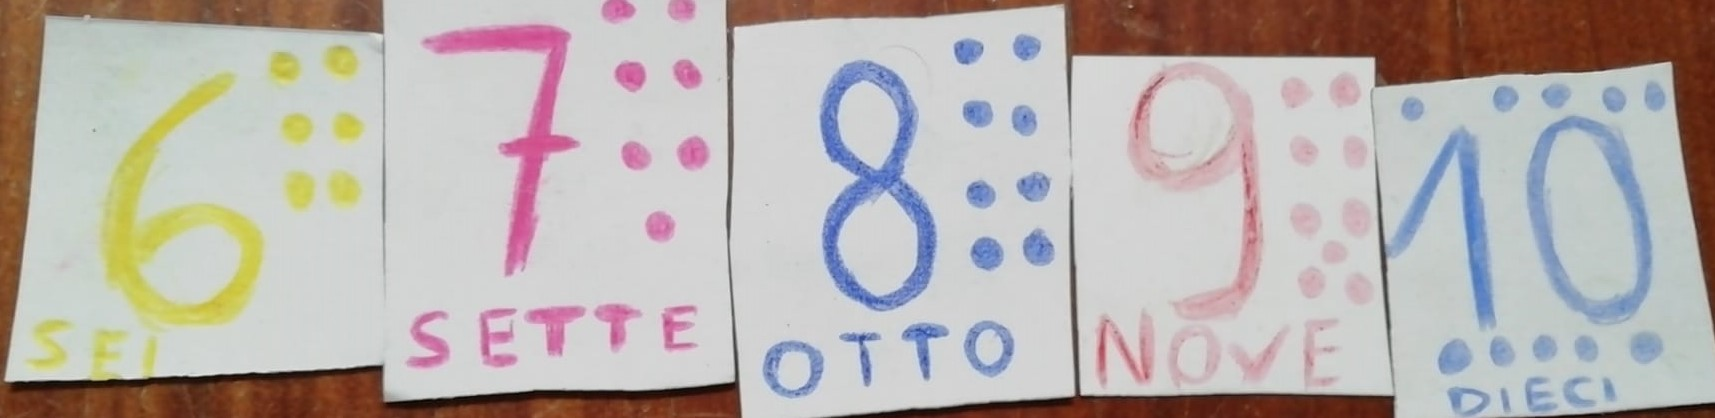 6
SEI
7
SETTE
8
OTTO
9
NOVE
10
DIECI